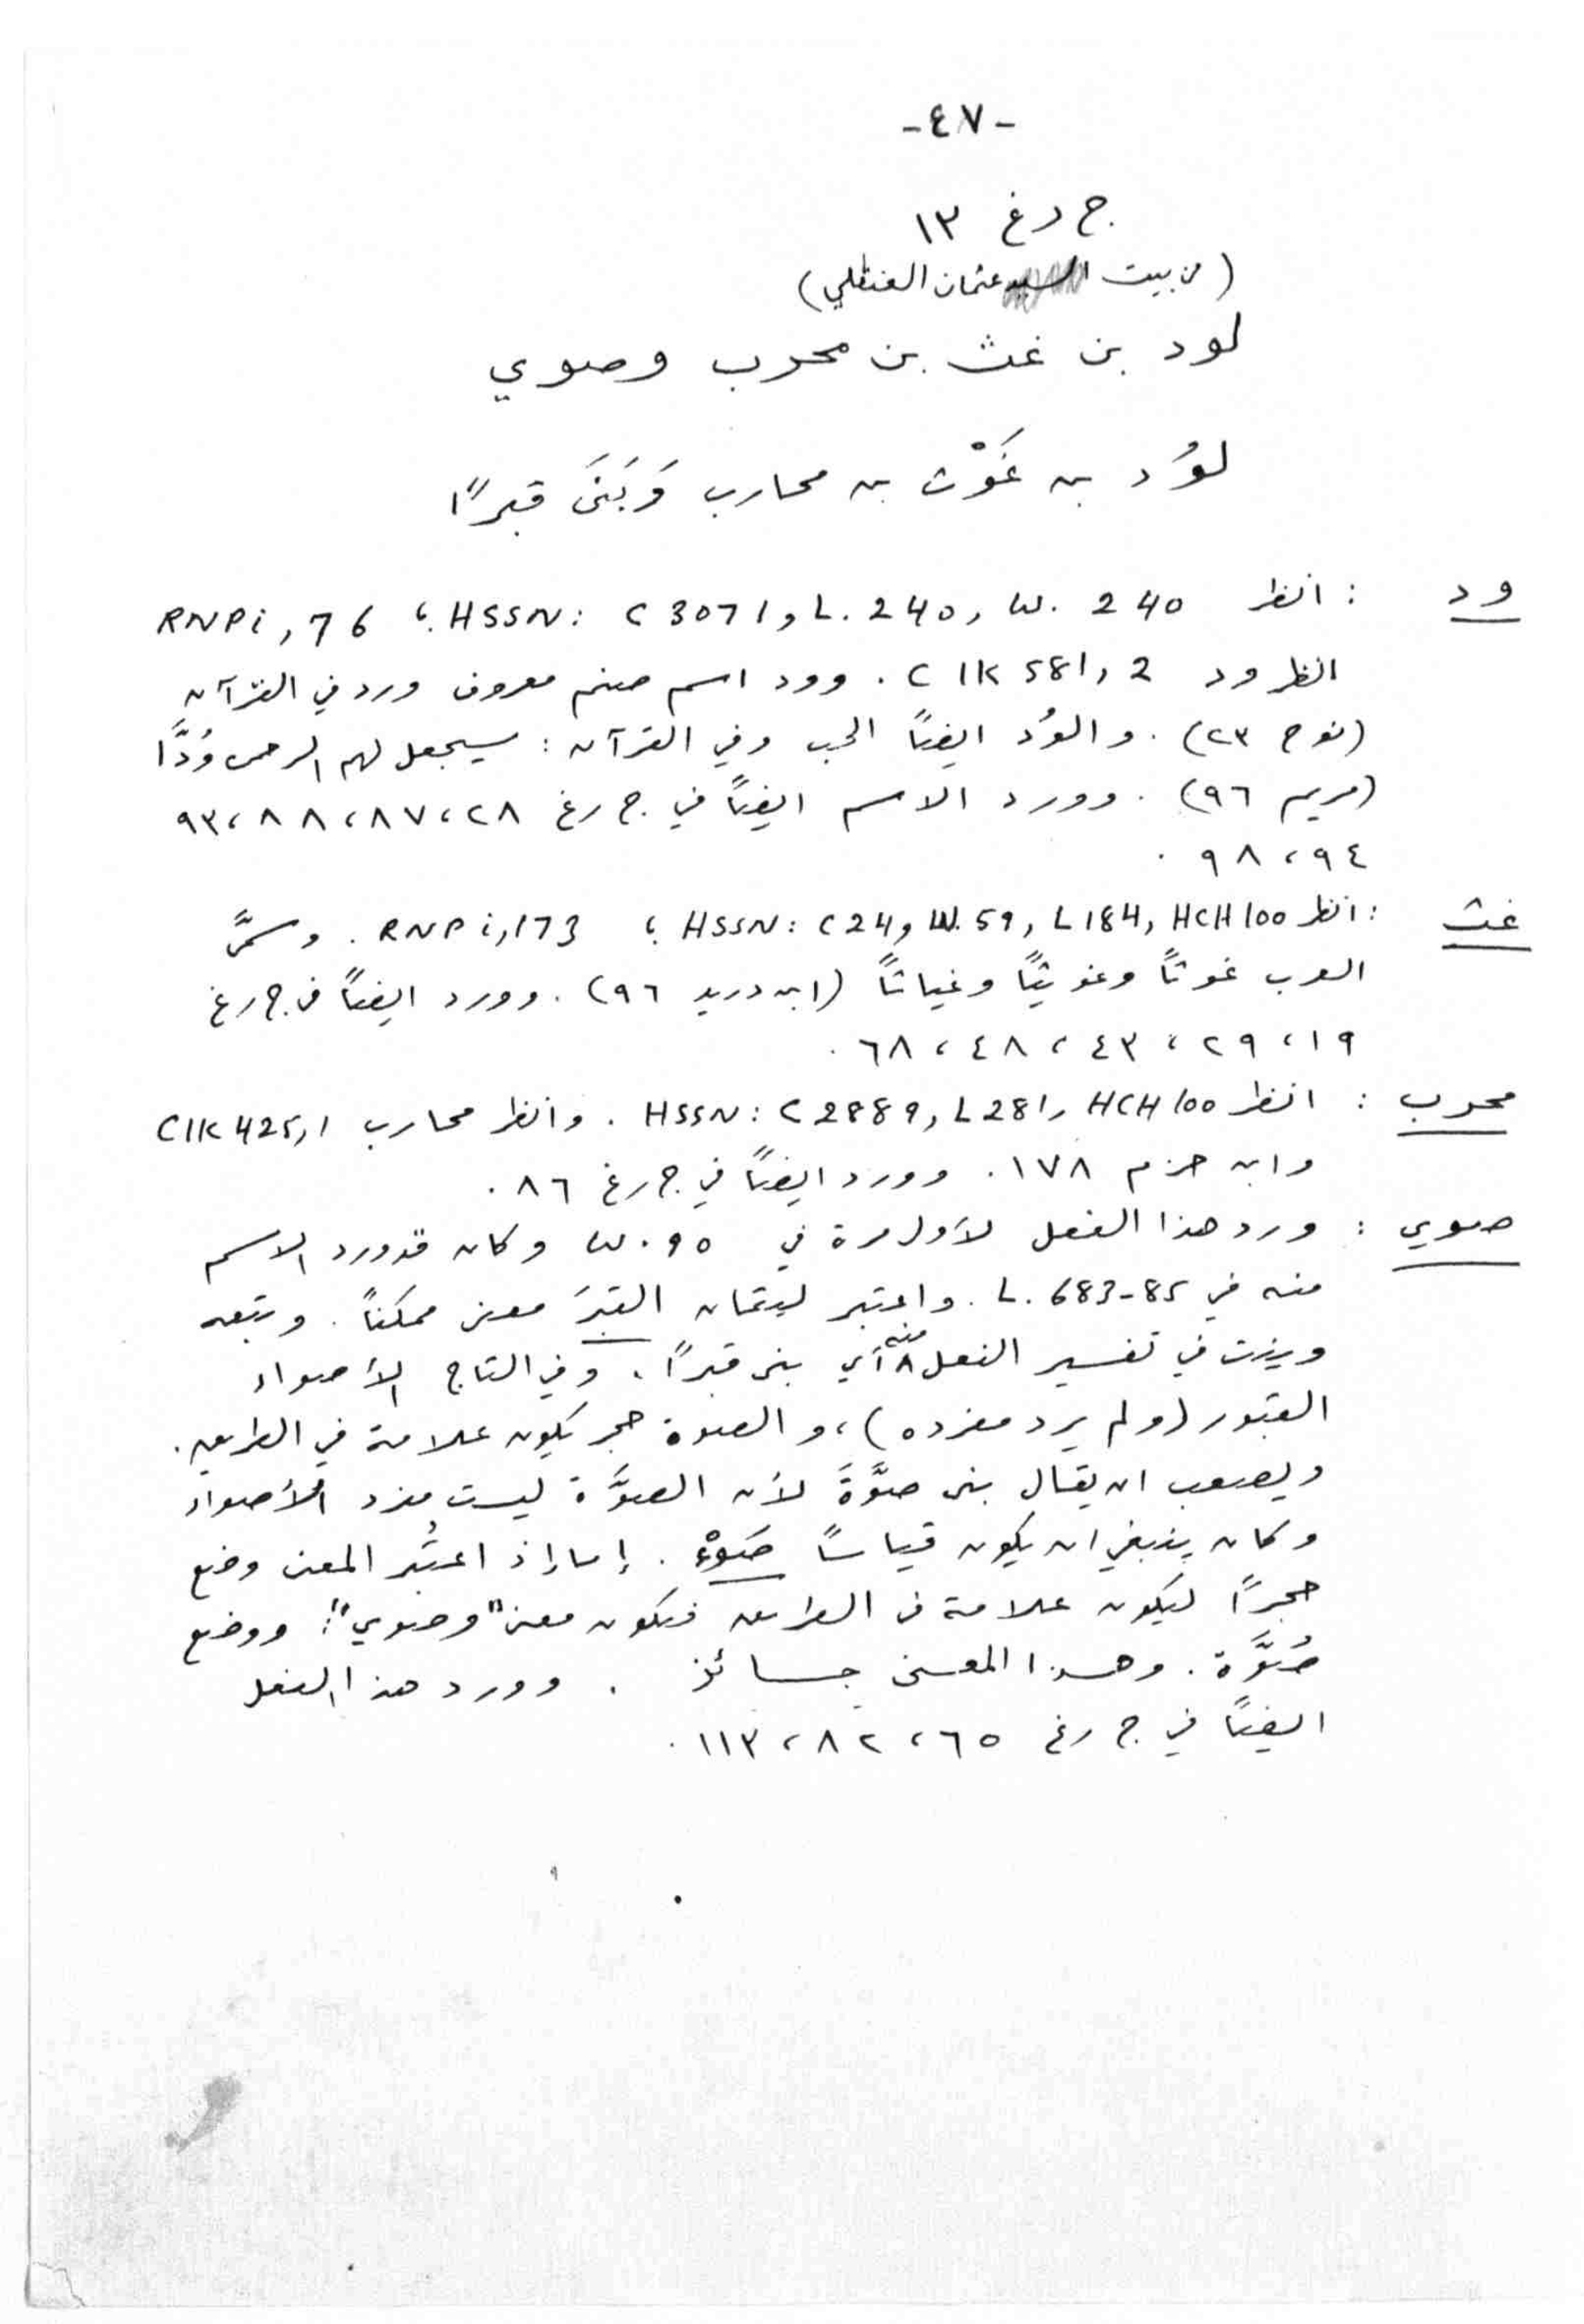 -٤٧-
ج رغ ١٣
(من بيت السيد عثمان الفنطلي)
لود بن غث بن محرب وصوي
لوُد بن غَوْث بن محارب وَبَنَى قبراً
ود : انظر HSSN: C 3071, L. 240, W. 240 ؛ RNP i, 76
انظر ود CIK 581, 2 . وود اسم صنم معروف ورد في القرآن
(نوح ٢٣) . والوُد ايضاً الحب وفي القرآن : سيجعل لهم الرحمن وُدَّا
(مريم ٩٦) . وورد الاسم ايضاً في ج رغ ٢٨، ٨٧، ٨٨، ٩٣،
٩٤، ٩٨ .
غث : انظر HSSN: C 24, W. 59, L 184, HCH 100 ؛ RNP i, 173 . وسمَّى
العرب غوثاً وغويثاً وغياثاً (ابن دريد ٩٦) . وورد ايضاً في ج رغ
١٩، ٢٩، ٤٣، ٤٨، ٦٨ .
محرب : انظر HSSN: C 2889, L 281, HCH 100 . وانظر محارب CIK 425, 1
وابن حزم ١٧٨ . وورد ايضاً في ج رغ ٨٦ .
صوي : ورد هذا الفعل لأول مرة في W. 95 وكان قد ورد الاسم
منه في L. 683-85 . واعتبر ليتمان القبرَ معنى ممكناً . وتبعه
وينت في تفسير الفعل منه أي بنى قبراً . وفي التاج الأصواء
القبور (ولم يرد مفرده) ، والصوة حجر يكون علامة في الطريق .
ويصعب ان يقال بنى صوَّةً لأن الصوَّة ليست مفرد الأصواء
وكان ينبغي ان يكون قياساً صَوْء . إما إذ اعتُبر المعنى وضع
حجراً ليكون علامة في الطريق فيكون معنى "وصوي" : ووضع
صُوَّة . وهذا المعنى جائز . وورد هذا الفعل
ايضاً في ج رغ ٦٥، ٨٢، ١١٣ .